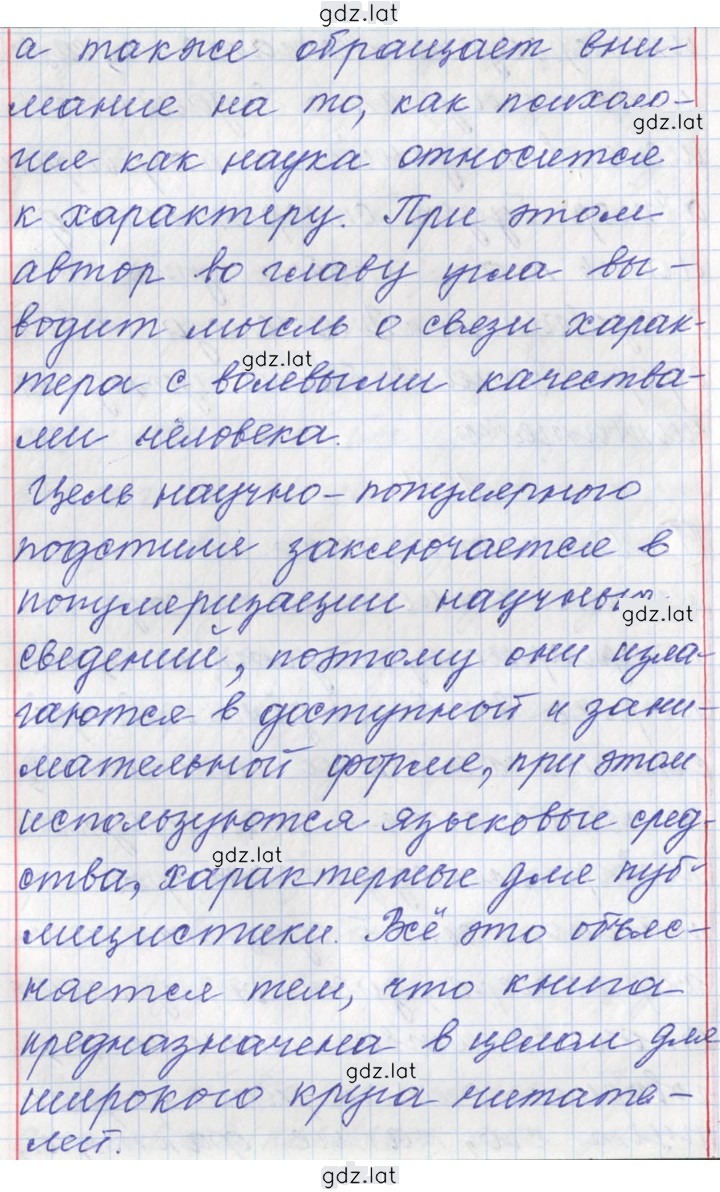 gdz.lat
а также обращает вни-
мание на то, как психоло-
gdz.lat
гия как наука относится
к характеру. При этом
автор во главу угла вы-
водит мысль о связи харак-
gdz.lat
тера с волевыми качества-
ми человека.
Цель научно-популярного
подстиля заключается в
популяризации научных
gdz.lat
сведений, поэтому они изла-
гаются в доступной и зани-
мательной форме, при этом
используются языковые сред-
gdz.lat
ства, характерные для пуб-
лицистики. Всё это объяс-
няется тем, что книга
предназначена в целом для
gdz.lat
широкого круга читате-
лей.
gdz.lat